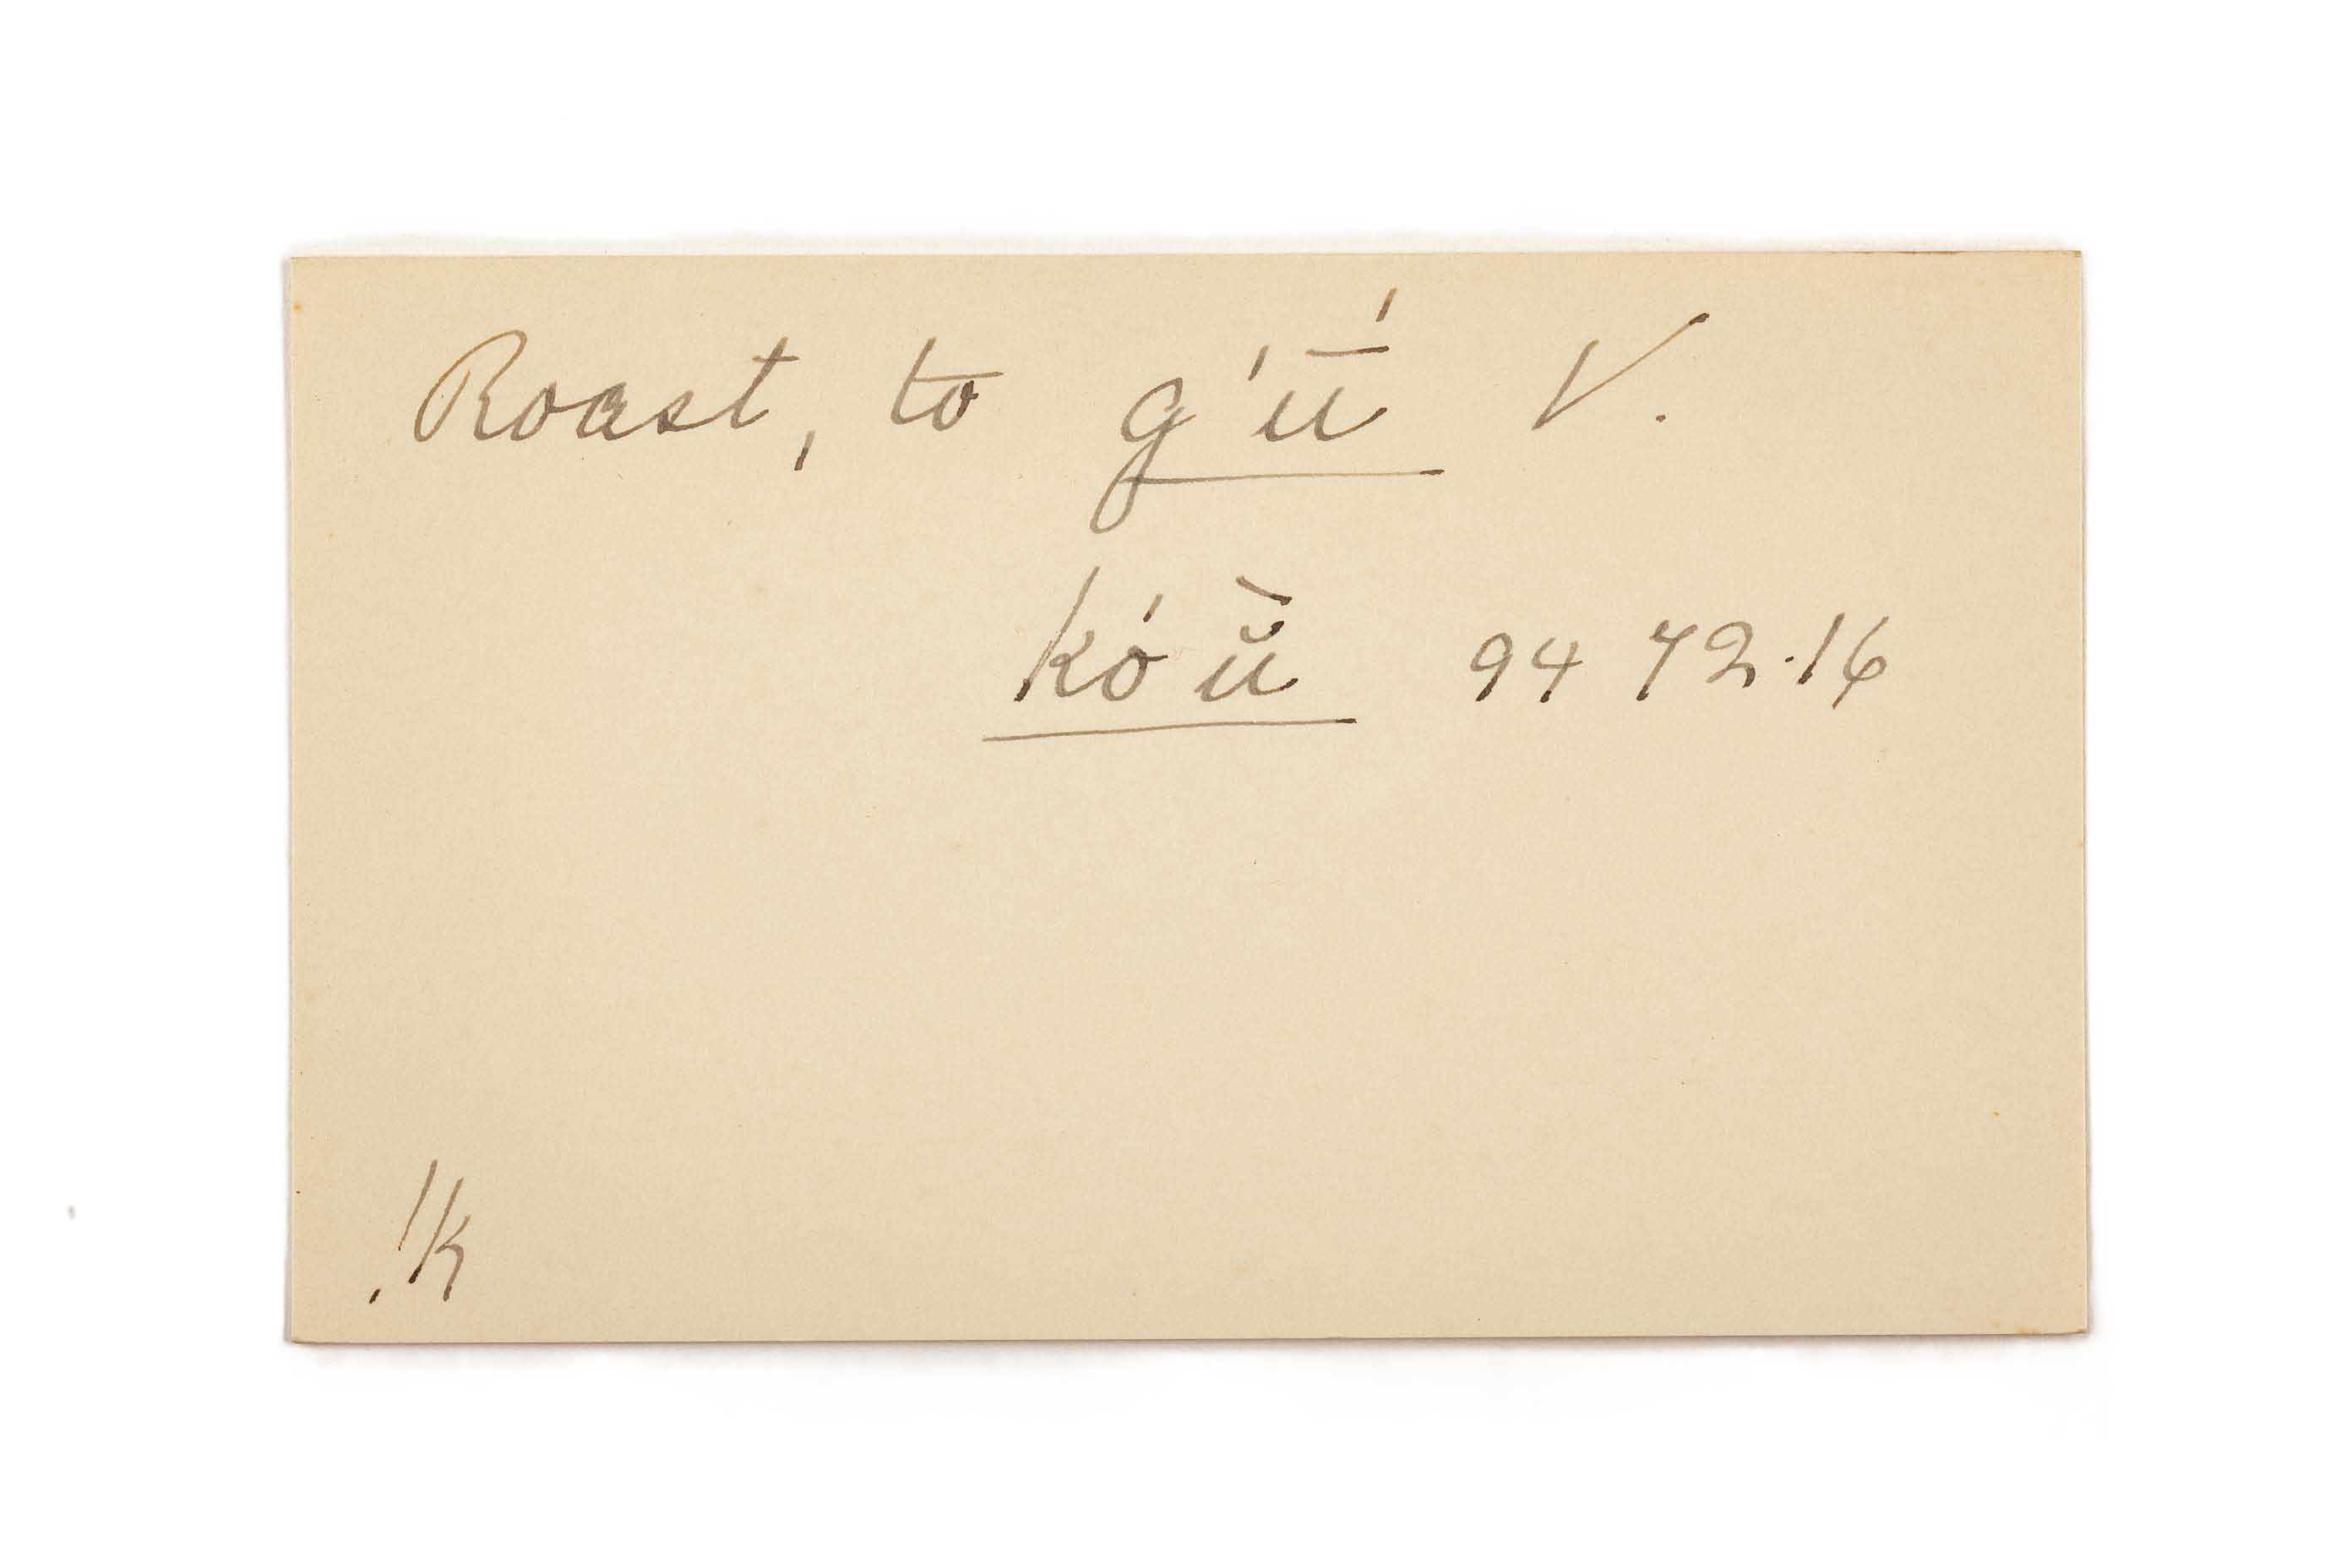 Roast, to g'ū́ V.
kó ŭ̀ 94 72.16
!k